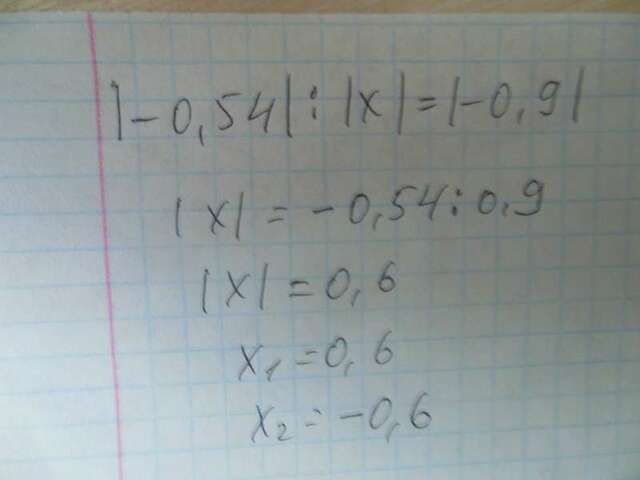 |-0,54|:|x|=|-0,9|
|x|=-0,54:0,9
|x|=0,6
x₁=0,6
x₂=-0,6